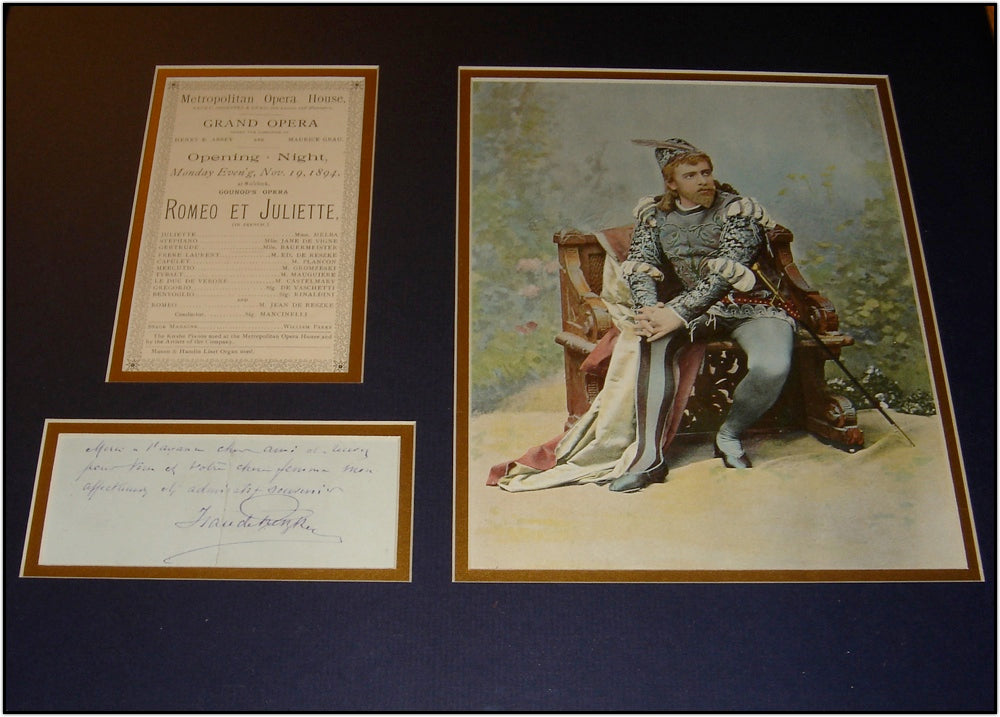 Metropolitan Opera House.
GRAND OPERA
UNDER THE DIRECTION OF
HENRY E. ABBEY AND MAURICE GRAU
Opening · Night,
Monday Even'g, Nov. 19, 1894,
at 8 o'clock,
GOUNOD'S OPERA
ROMEO ET JULIETTE,
(IN FRENCH.)
JULIETTE Mme. MELBA
STEPHANO Mlle. JANE DE VIGNE
GERTRUDE Mlle. BAUERMEISTER
FRERE LAURENT M. ED. DE RESZKE
CAPULET M. PLANCON
MERCUTIO M. GROMZESKI
TYBALT M. MAUGUIERE
LE DUC DE VERONE M. CASTELMARY
GREGORIO Sig. DE VASCHETTI
BENVOGLIO Sig. RINALDINI
AND
ROMEO M. JEAN DE RESZKE
Conductor Sig. MANCINELLI
STAGE MANAGER WILLIAM PARRY
The Knabe Pianos used at the Metropolitan Opera House and
by the Artists of the Company.
Mason & Hamlin Liszt Organ used.
Merci à l'avance cher ami et
pour et votre chère femme mon
affectueux et souvenir
Jean de Reszke